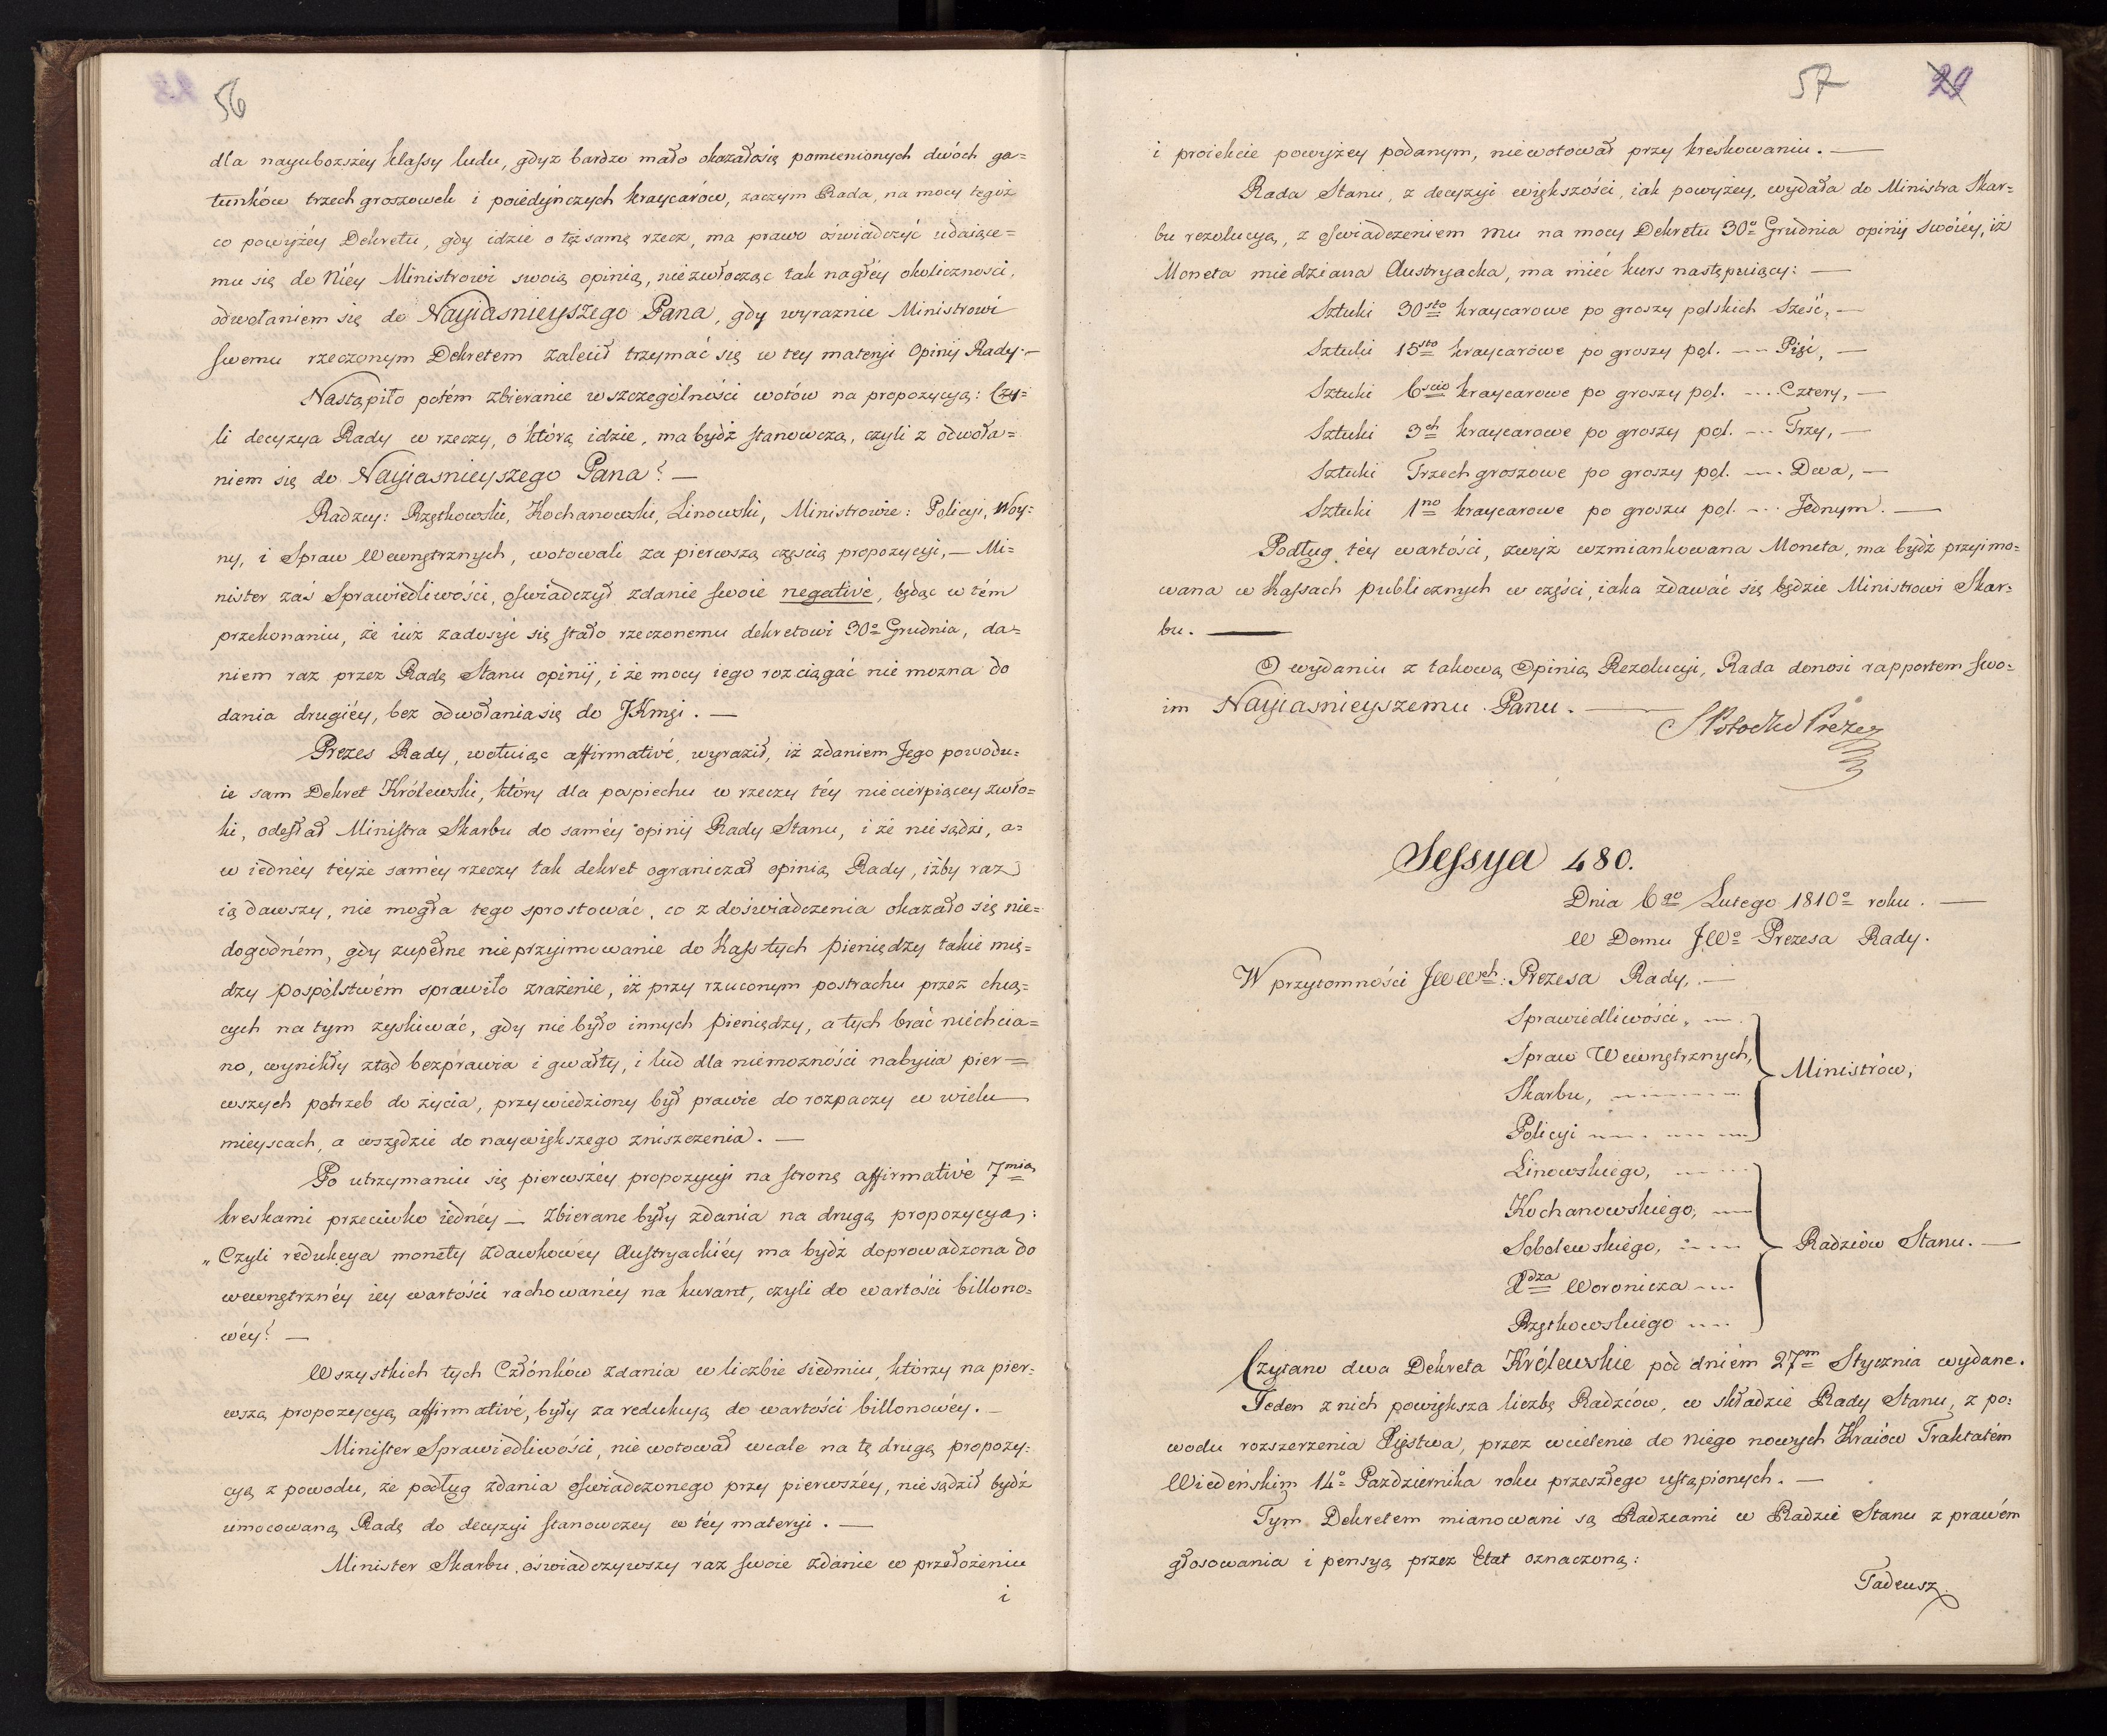 56
dla nayuboższey klassy ludu, gdyż bardzo mało okazałosię pomienionych dwóch ga=
tunków trzech groszowek i poiedyńczych kraycarów, zaczym Rada, na mocy tegoż
co powyżey Dekretu, gdy idzie o tęż samę rzecz, ma prawo oświadczyć udaiące=
mu się do Niéy Ministrowi swoią opinią, niezwłocząc tak nagłéy okoliczności,
odwołaniem się do Nayiasnieyszego Pana, gdy wyraznie Ministrowi
swemu rzeczonym Dekretem zalecił trzymać się w tey materyi Opinij Rady.—
Nastąpiło potém zbieranie wszczególności wotów na propozycyą: Czy=
li decyzya Rady w rzeczy, o którą idzie, ma bydź stanowcza, czyli z odwoła=
niem się do Nayiasnieyszego Pana? —
Radzcy: Rzętkowski, Kochanowski, Linowski, Ministrowie: Policyi, Woy=
ny, i Spraw Wewnętrznych, wotowali za pierwszą częścią propozycyi,— Mi=
nister zaś Sprawiedliwości, oswiadczył zdanie swoie negativé, będąc w tém
przekonaniu, że iuż zadosyć się stało rzeczonemu dekretowi 30º Grudnia, da=
niem raz przez Radę Stanu opinij, i że mocy iego rozciągać nie mozna do
dania drugiéy, bez odwołaniasię do JKmści. —
Prezes Rady, wotuiąc affirmativé, wyraził, iż zdaniem Jego powodu=
ie sam Dekret Królewski, który dla pospiechu w rzeczy téy niecierpiącey zwło=
ki, odesłał Ministra Skarbu do saméy opinij Rady Stanu, i że nie sądzi, a=
w iednéy téyże saméy rzeczy tak dekret ograniczał opinią Rady, iżby raz
ią dawszy, nie mogła tego sprostować, co z doświadczenia okazało się nie=
dogodném, gdy zupełne nieprzyimowanie do Kass tych pieniędzy takie mię=
dzy pospólstwém sprawiło zrażenie, iż przy rzuconym postrachu przez chcą=
cych na tym zyskiwać, gdy nie było innych pieniędzy, a tych brać niechcia=
no, wynikły ztąd bezprawia i gwałty, i lud dla niemożności nabycia pier=
wszych potrzeb do życia, przywiedziony był prawie do rozpaczy w wielu
mieyscach, a wszędzie do naywiększego zniszczenia. —
Po utrzymaniu się pierwszéy propozycyi na stronę affirmativé 7mią
kreskami przeciwko iednéy — Zbierane były zdania na drugą propozycyą:
„Czyli redukcya monéty zdawkowéy Austryackiéy ma bydź doprowadzona do
wewnętrznéy iéy wartości rachowanéy na kurant, czyli do wartości billono=
wéy? —
Wszystkich tych Członków zdania w liczbie siedmiu, którzy na pier=
wszą propozycyą affirmativé, były za redukcyą do wartości billonowéy. —
Minister Sprawiedliwości, nie wotował wcale na tę drugą propozy=
cyą z powodu, że podług zdania oswiadczonego przy pierwszéy, nie sądził bydź
umocowaną Radę do decyzyi stanowczey w téy materyi. —
Minister Skarbu, oświadczywszy raz swoie zdanie w przełożeniu
i
57 29
i proiekcie powyżey podanym, niewotował przy kreskowaniu. —
Rada Stanu, z decyzyi większości, iak powyżey, wydała do Ministra Skar=
bu rezolucyą, z oswiadczeniem mu na mocy Dekretu 30º Grudnia opinij swoiéy, iż
Moneta miedziana Austryacka, ma mieć kurs następuiący: —
Sztuki 30sto kraycarowe po groszy polskich Sześć, —
Sztuki 15sto kraycarowe po groszy pol. --- Pięć, —
Sztuki 6scio kraycarowe po groszy pol. .... Cztery, —
Sztuki 3ch kraycarowe po groszy pol. --- Trzy, —
Sztuki Trzech groszowe po groszy pol. ---- Dwa, —
Sztuki 1no kraycarowe po groszu pol. --- Jednym. —
Podług téy wartości, zwyż wzmiankowana Moneta, ma bydź przyimo=
wana w Kassach publicznych w części, iaka zdawać się będzie Ministrowi Skar=
bu. —
O wydaniu z takową Opinią Rezolucyi, Rada donosi rapportem swo=
im Nayiasnieyszemu Panu. —
S Potocki Prezes
Sessya 480.
Dnia 6go Lutego 1810º roku. —
W Domu JWº Prezesa Rady.
W przytomności JWWch: Prezesa Rady, —
Sprawiedliwości, —
Spraw Wewnętrznych,
Skarbu, ----
Policyi ----
Ministrów,
Linowskiego, ----
Kochanowskiego, ---
Sobolewskiego, ----
Xdza Woronicza ---
Rzętkowskiego ----
Radzców Stanu. —
Czytano dwa Dekreta Królewskie pod dniém 27m Stycznia wydane.
Jeden z nich powiększa liczbę Radzców, w składzie Rady Stanu, z po=
wodu rozszerzenia Xięstwa, przez wcielenie do niego nowych Kraiów Traktatém
Wiedeńskim 14º Pazdziernika roku przeszłego ustąpionych. —
Tym Dekretem mianowani są Radzcami w Radzie Stanu z prawém
głosowania i pensyą przez Etat oznaczoną:
Tadeusz